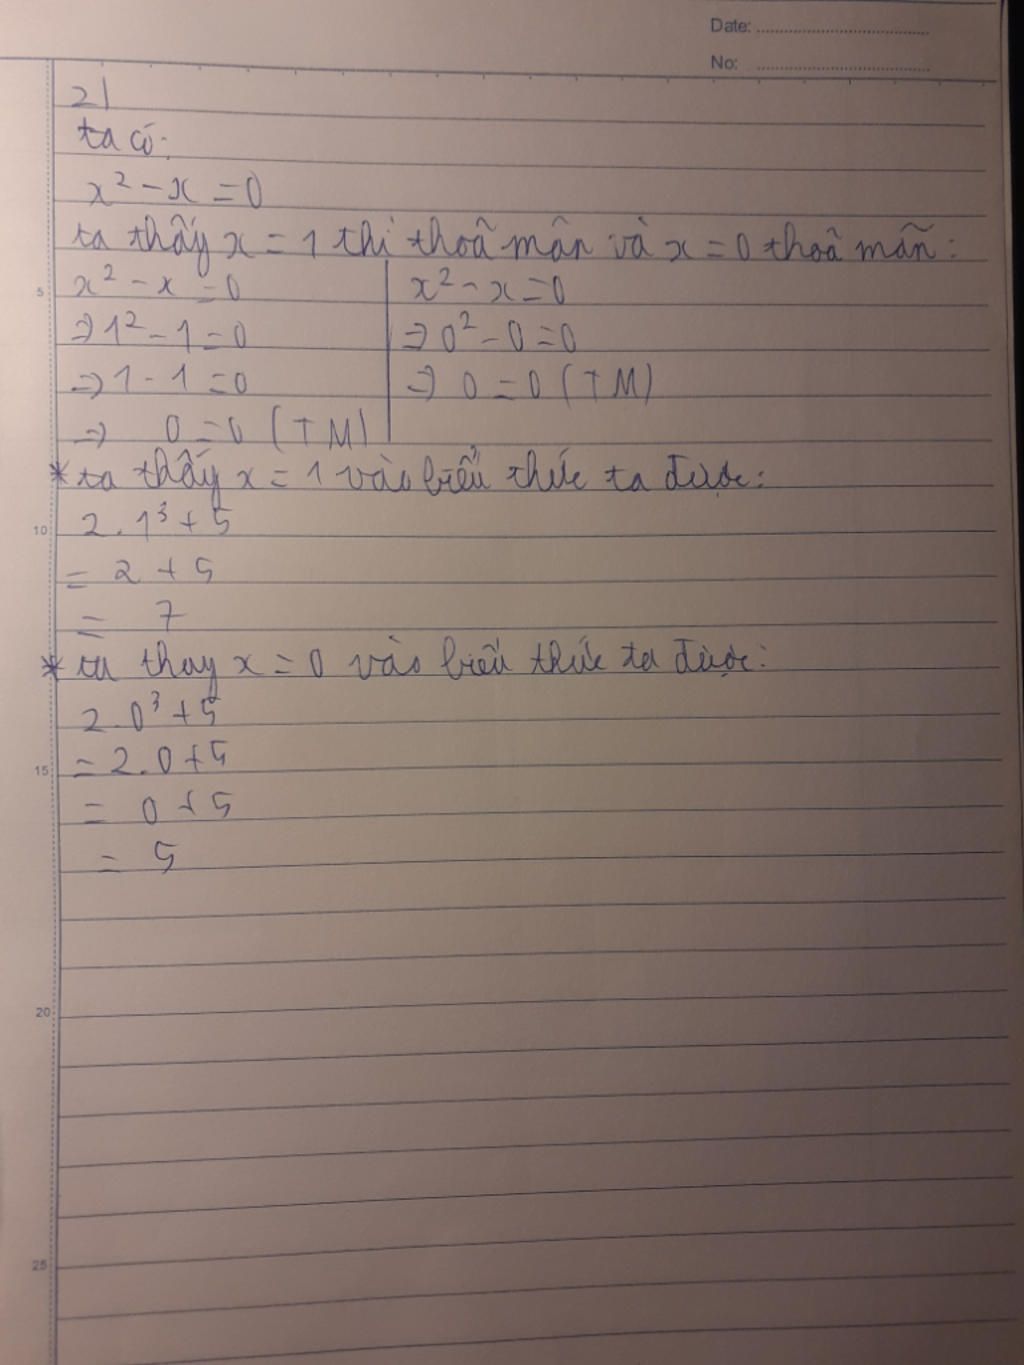 Date:
No:
2)
ta có:
x² - x = 0
ta thấy x = 1 thì thoã mãn và x = 0 thoã mãn:
5
x² - x = 0 x² - x = 0
⇒ 1² - 1 = 0 ⇒ 0² - 0 = 0
⇒ 1 - 1 = 0 ⇒ 0 = 0 (TM)
⇒ 0 = 0 (TM)
* ta thấy x = 1 vào biểu thức ta được:
10
2 . 1³ + 5
= 2 + 5
= 7
* ta thay x = 0 vào biểu thức ta được:
2 . 0³ + 5
15
= 2 . 0 + 5
= 0 + 5
= 5
20
25